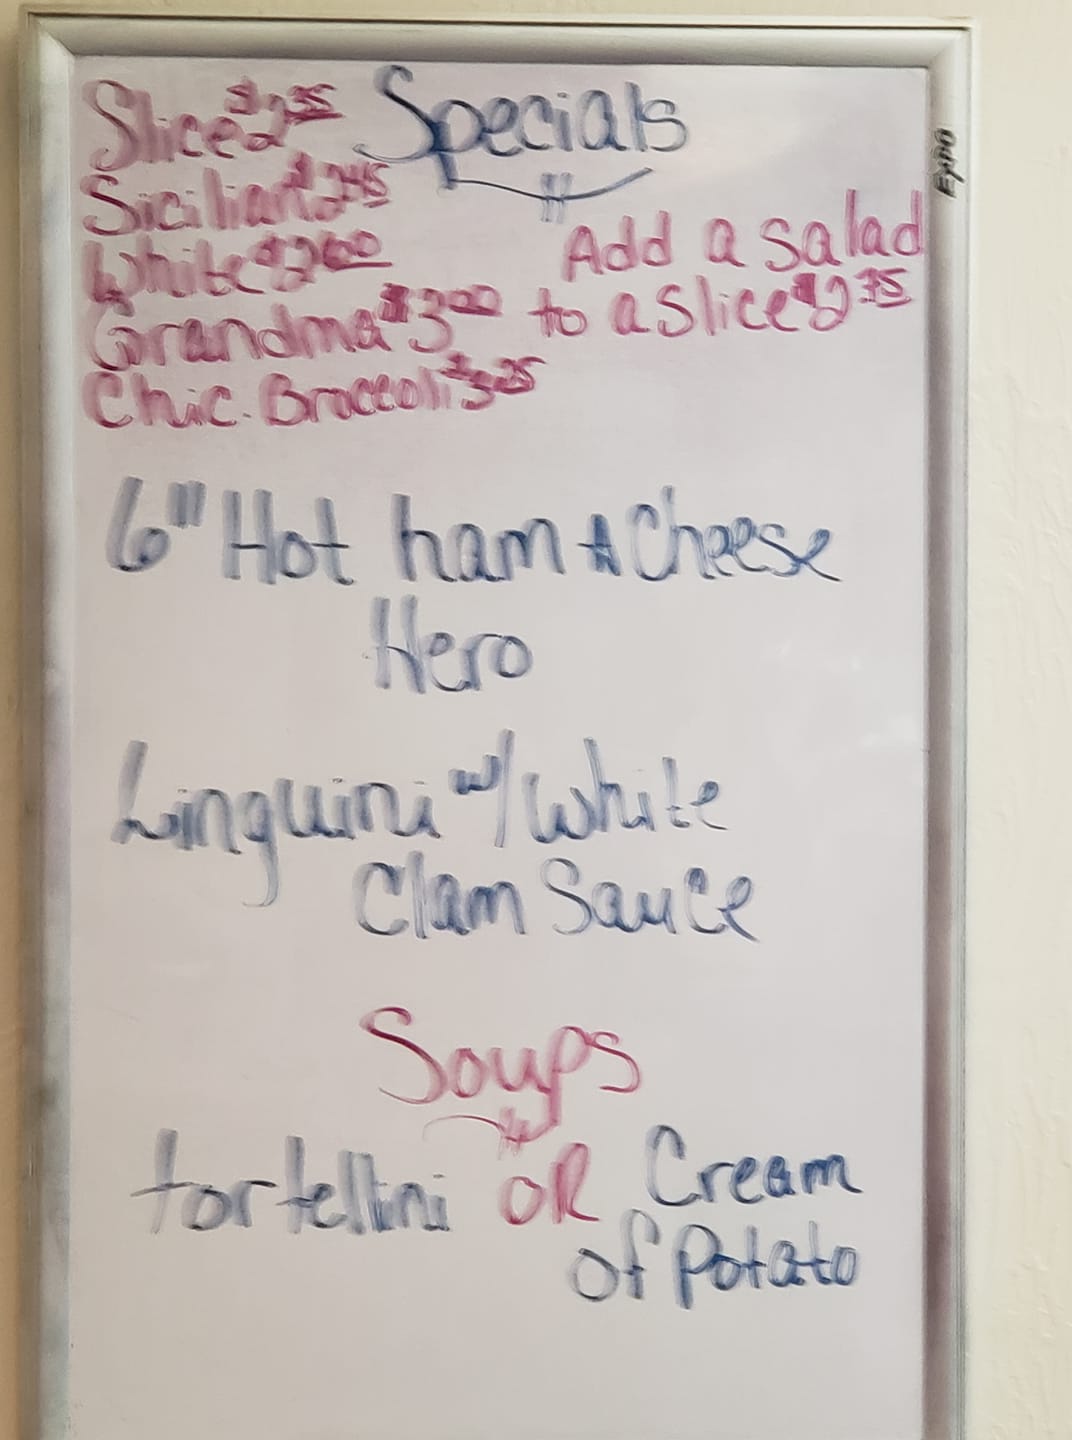 Specials
Slice $2.35
Sicilian $2.45
White $2.60
Grandma $3.00
Chic. Broccoli $3.25
Add a salad
to a Slice $2.75
6" Hot ham & Cheese
Hero
Linguini w/ White
Clam Sauce
Soups
tortellini OR Cream
of Potato
Expo